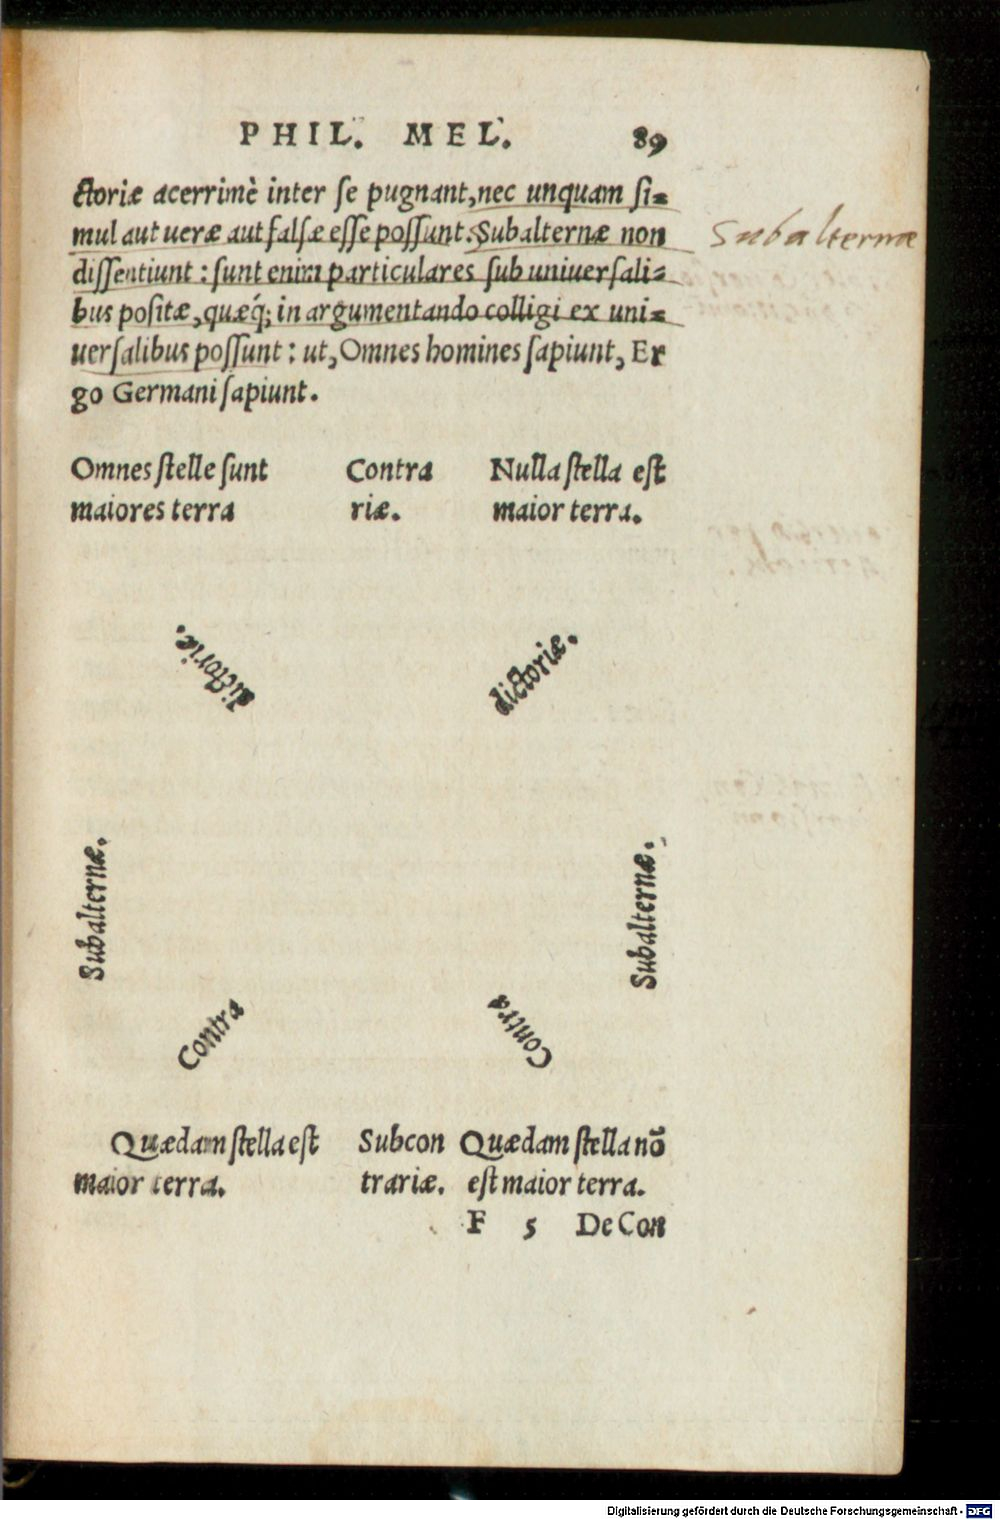 PHIL. MEL. 89
ctoriæ acerrimè inter se pugnant, nec unquam si-
mul aut ueræ aut falsæ esse possunt. Subalternæ non
dissentiunt: sunt enim particulares sub uniuersali-
bus positæ, quæq́; in argumentando colligi ex uni-
uersalibus possunt: ut, Omnes homines sapiunt, Er
go Germani sapiunt.
Subalternæ
Omnes stelle sunt Contra Nulla stella est
maiores terra riæ. maior terra.
dictoriæ. dictoriæ.
Subalternæ. Subalternæ.
Contra Contra
Quædam stella est Subcon Quædam stella nō
maior terra. trariæ. est maior terra.
F 5 De Con
Digitalisierung gefördert durch die Deutsche Forschungsgemeinschaft - DFG